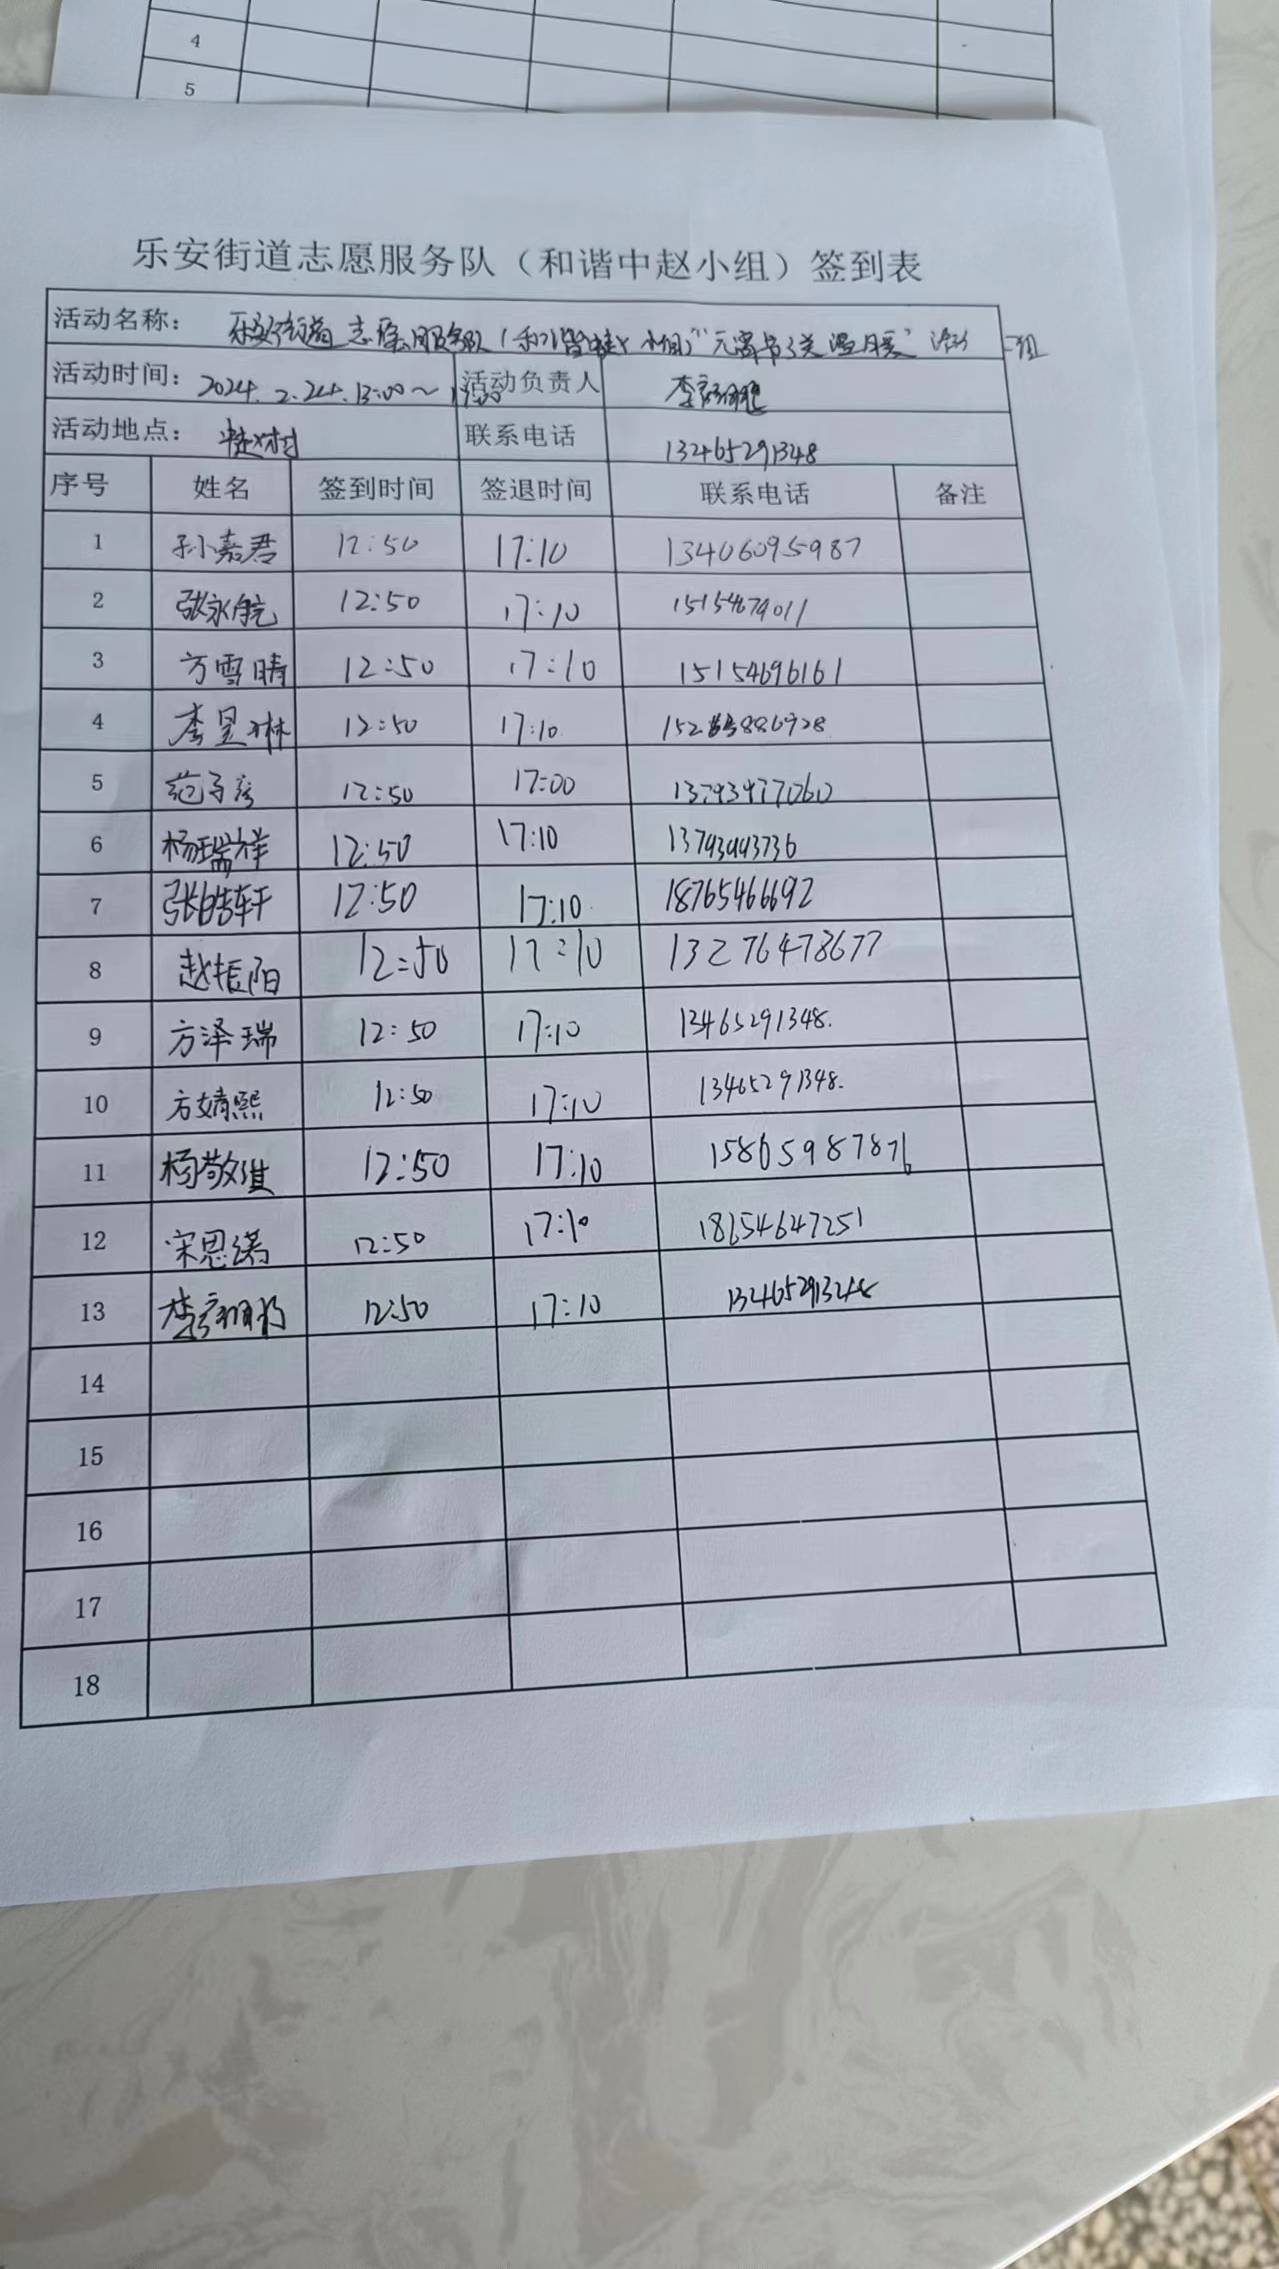 4
5
乐安街道志愿服务队（和谐中赵小组）签到表
活动名称： 乐安街道志愿服务队（和谐中赵小组）“元宵节送温暖”活动 二组
活动时间： 2024.2.24.13:00～ 活动负责人
活动地点： 中赵村 联系电话 13465291348
序号 姓名 签到时间 签退时间 联系电话 备注
1 孙嘉君 12:50 17:10 13406095987
2 张永航 12:50 17:10 15154674011
3 方雪晴 12:50 17:10 15154696161
4 李昱琳 12:50 17:10
5 12:50 17:00 13793477060
6 杨瑞祥 12:50 17:10 13793443736
7 张皓轩 12:50 17:10 18765466692
8 赵振阳 12:50 17:10 13276478677
9 方泽瑞 12:50 17:10 13465291348.
10 方婧熙 12:50 17:10 13465291348.
11 杨敬淇 12:50 17:10 15865987876
12 宋恩漪 12:50 17:10 18654647251
13 12:50 17:10
14
15
16
17
18